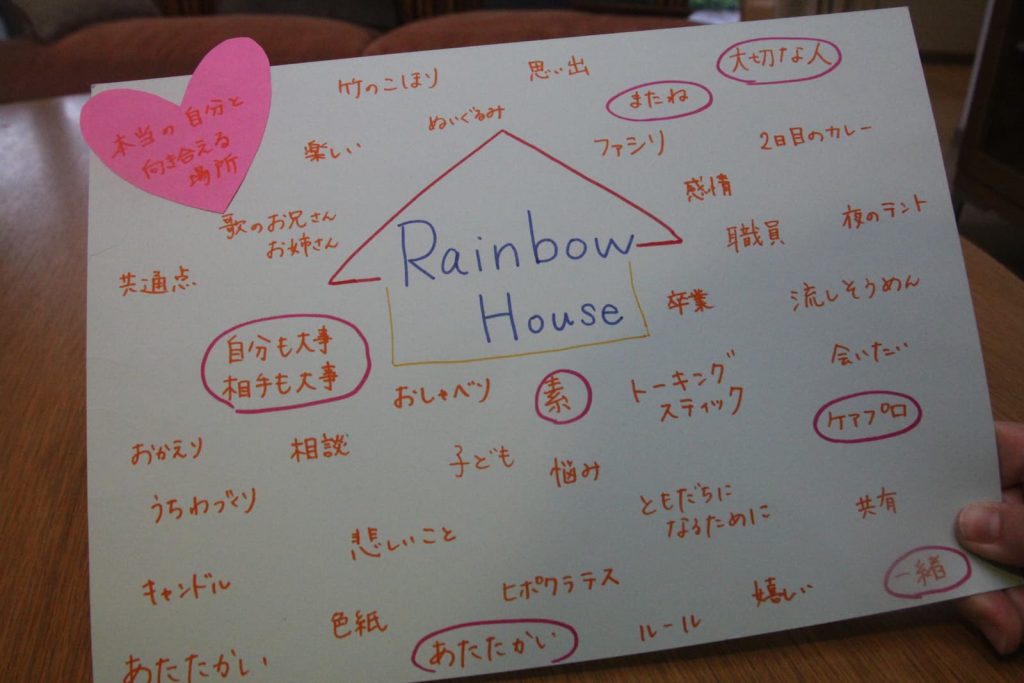 本当の自分と
向き合える
場所
竹のこほり
思い出
大切な人
またね
ぬいぐるみ
楽しい
ファシリ
2日目のカレー
感情
歌のお兄さん
お姉さん
職員
夜のテント
共通点
Rainbow
House
卒業
流しそうめん
自分も大事
相手も大事
おしゃべり
素
トーキング
スティック
会いたい
ケアプロ
おかえり
相談
子ども
悩み
うちわづくり
ともだちに
なるために
共有
悲しいこと
キャンドル
ヒポクラテス
嬉しい
一緒
色紙
ルール
あたたかい
あたたかい